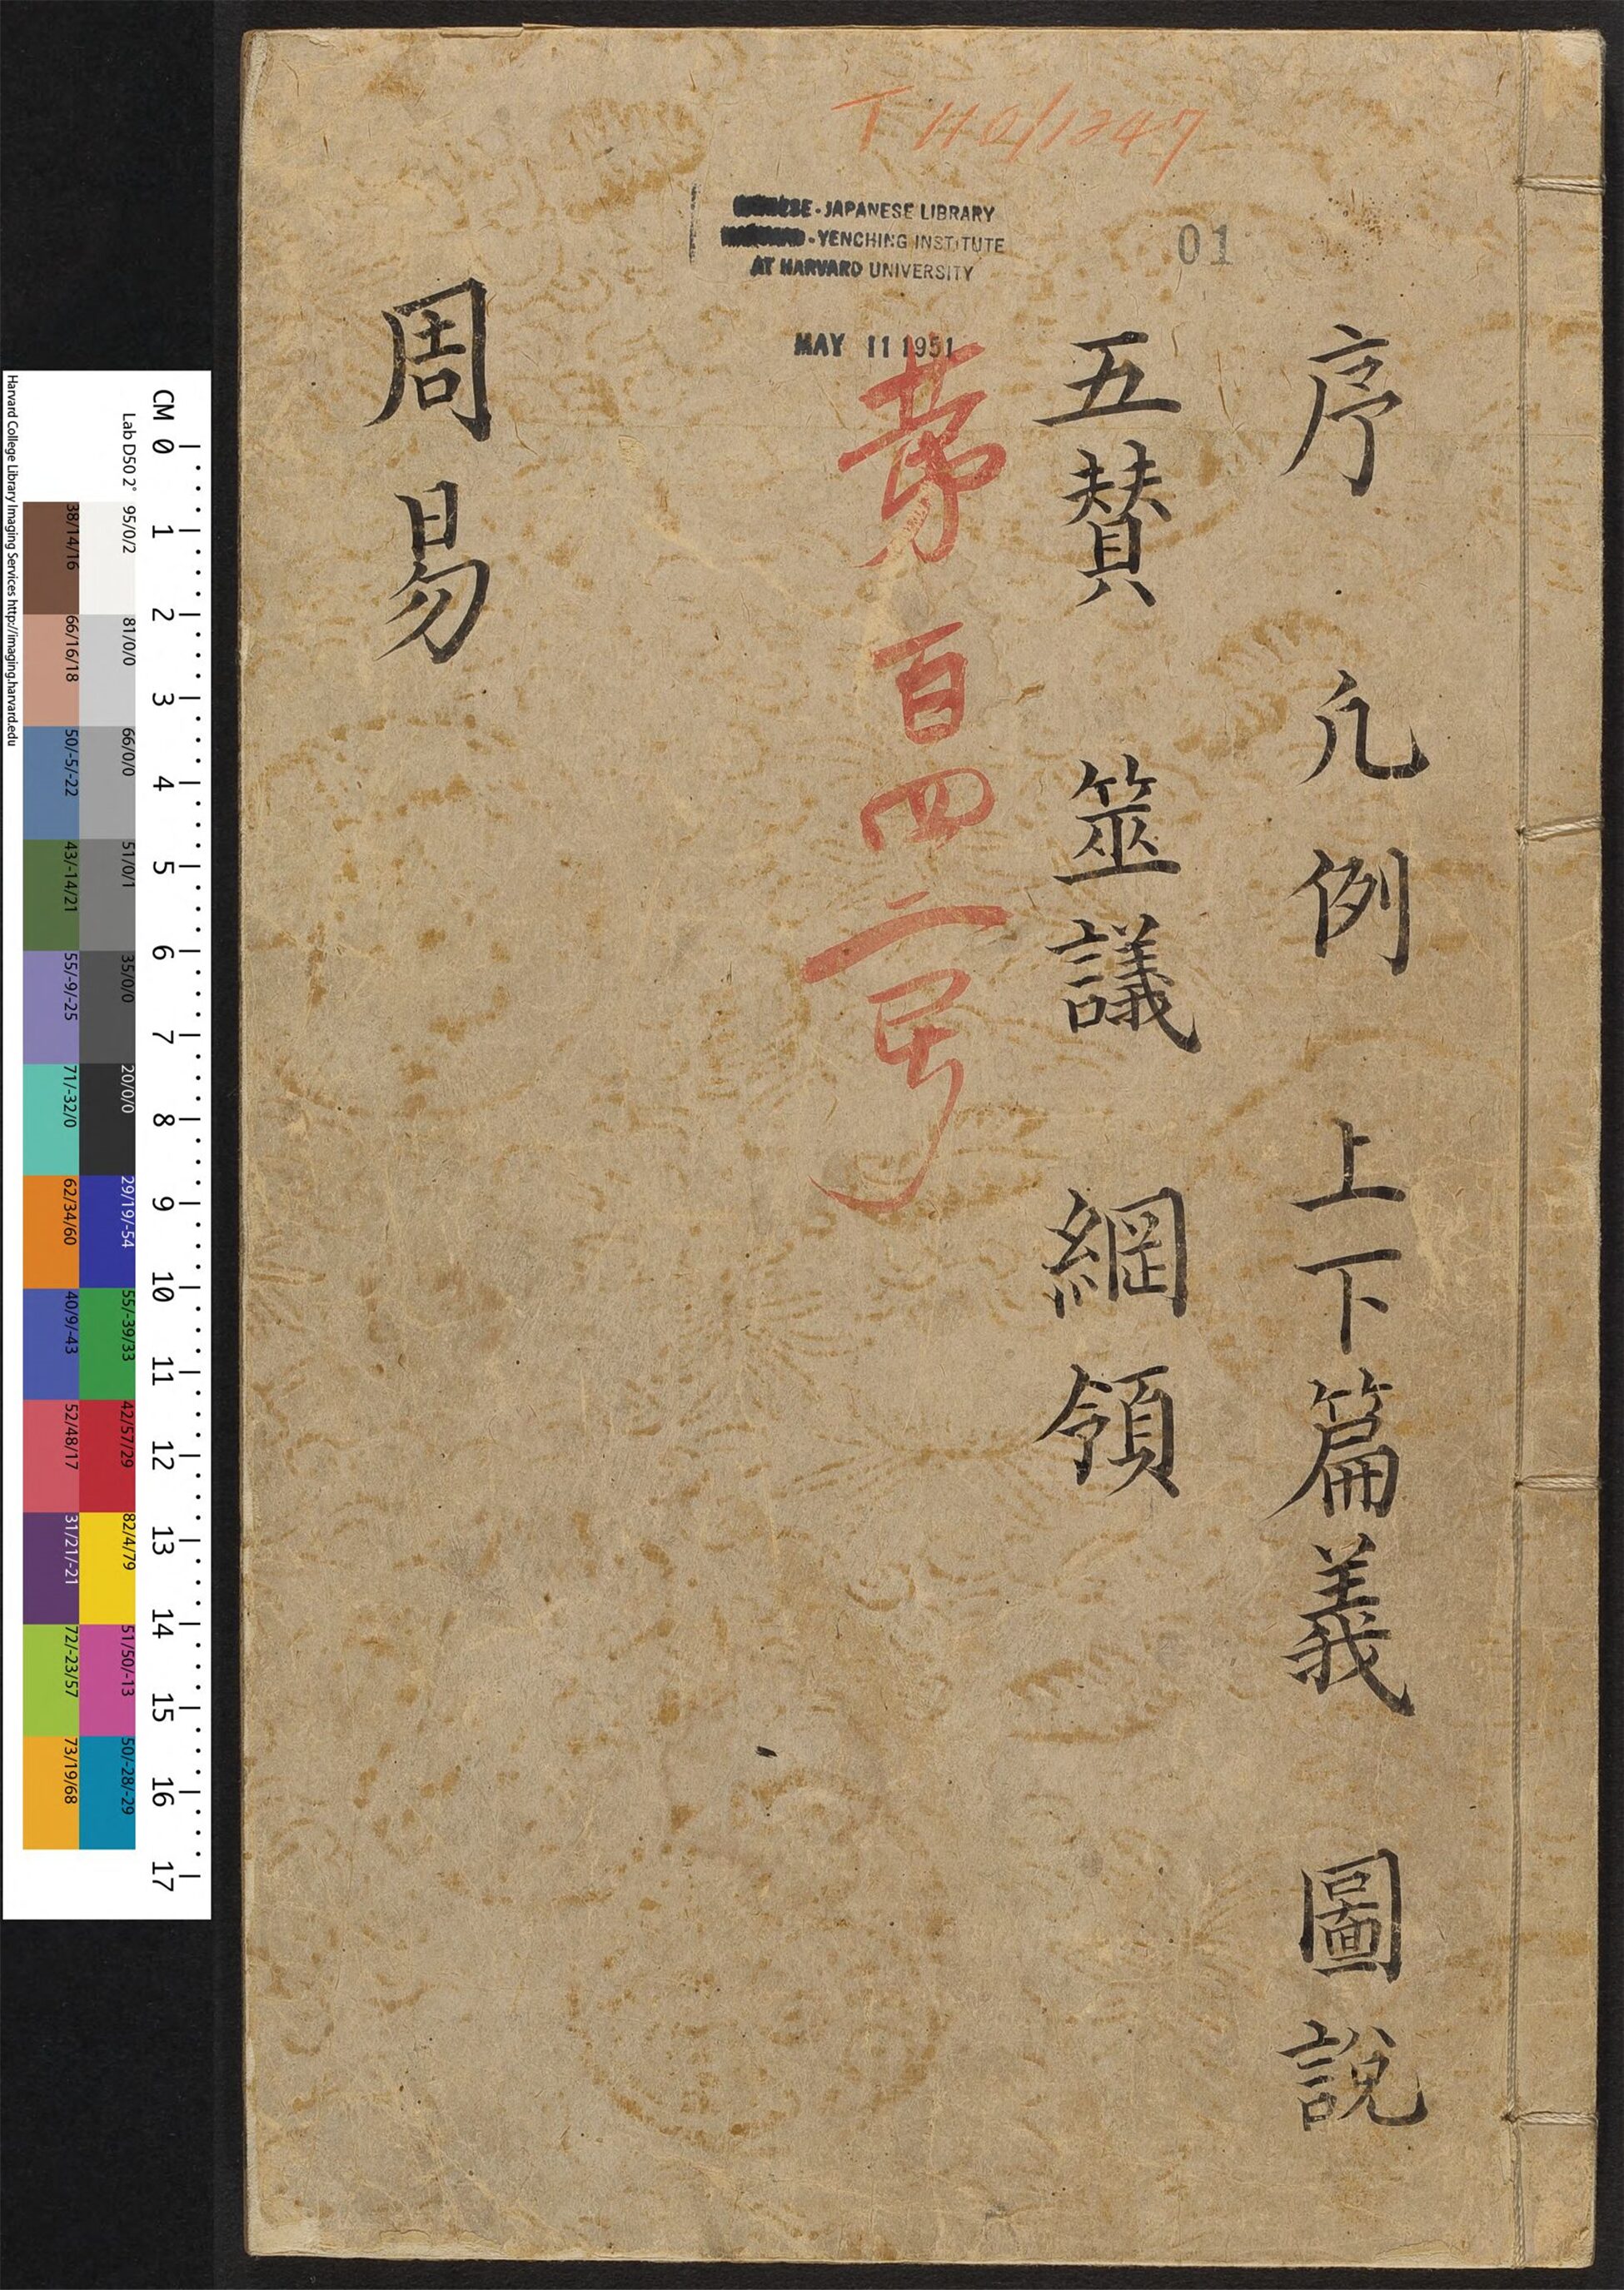 T 110/1347
CHINESE-JAPANESE LIBRARY
HARVARD-YENCHING INSTITUTE
AT HARVARD UNIVERSITY
MAY 11 1951
01
序 凡例 上下篇義 圖說
五賛 筮議 綱領
第百四二号
周易
Harvard College Library Imaging Services http://imaging.harvard.edu
Lab D50 2°
CM 0 1 2 3 4 5 6 7 8 9 10 11 12 13 14 15 16 17
95/0/2
81/0/0
66/0/0
51/0/1
35/0/0
20/0/0
29/19/-54
55/-39/33
42/57/29
82/4/79
51/50/-13
50/-28/-29
38/14/16
66/16/18
50/-5/-22
43/-14/21
55/-9/-25
71/-32/0
62/34/60
40/9/-43
52/48/17
31/21/-21
72/-23/57
73/19/68